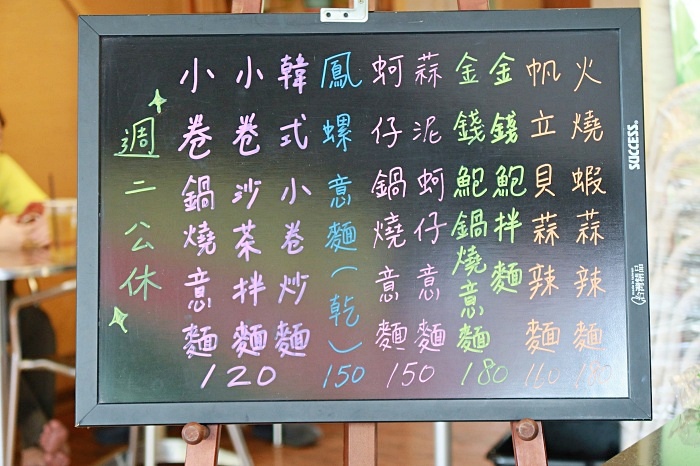 火燒蝦蒜辣麵
帆立貝蒜辣麵
金錢鮑拌麵
金錢鮑鍋燒意麵
180
蒜泥蚵仔意麵
蚵仔鍋燒意麵
150
鳳螺意麵(乾)
150
韓式小卷炒麵
小卷沙茶拌麵
小卷鍋燒意麵
120
週二公休
SUCCESS